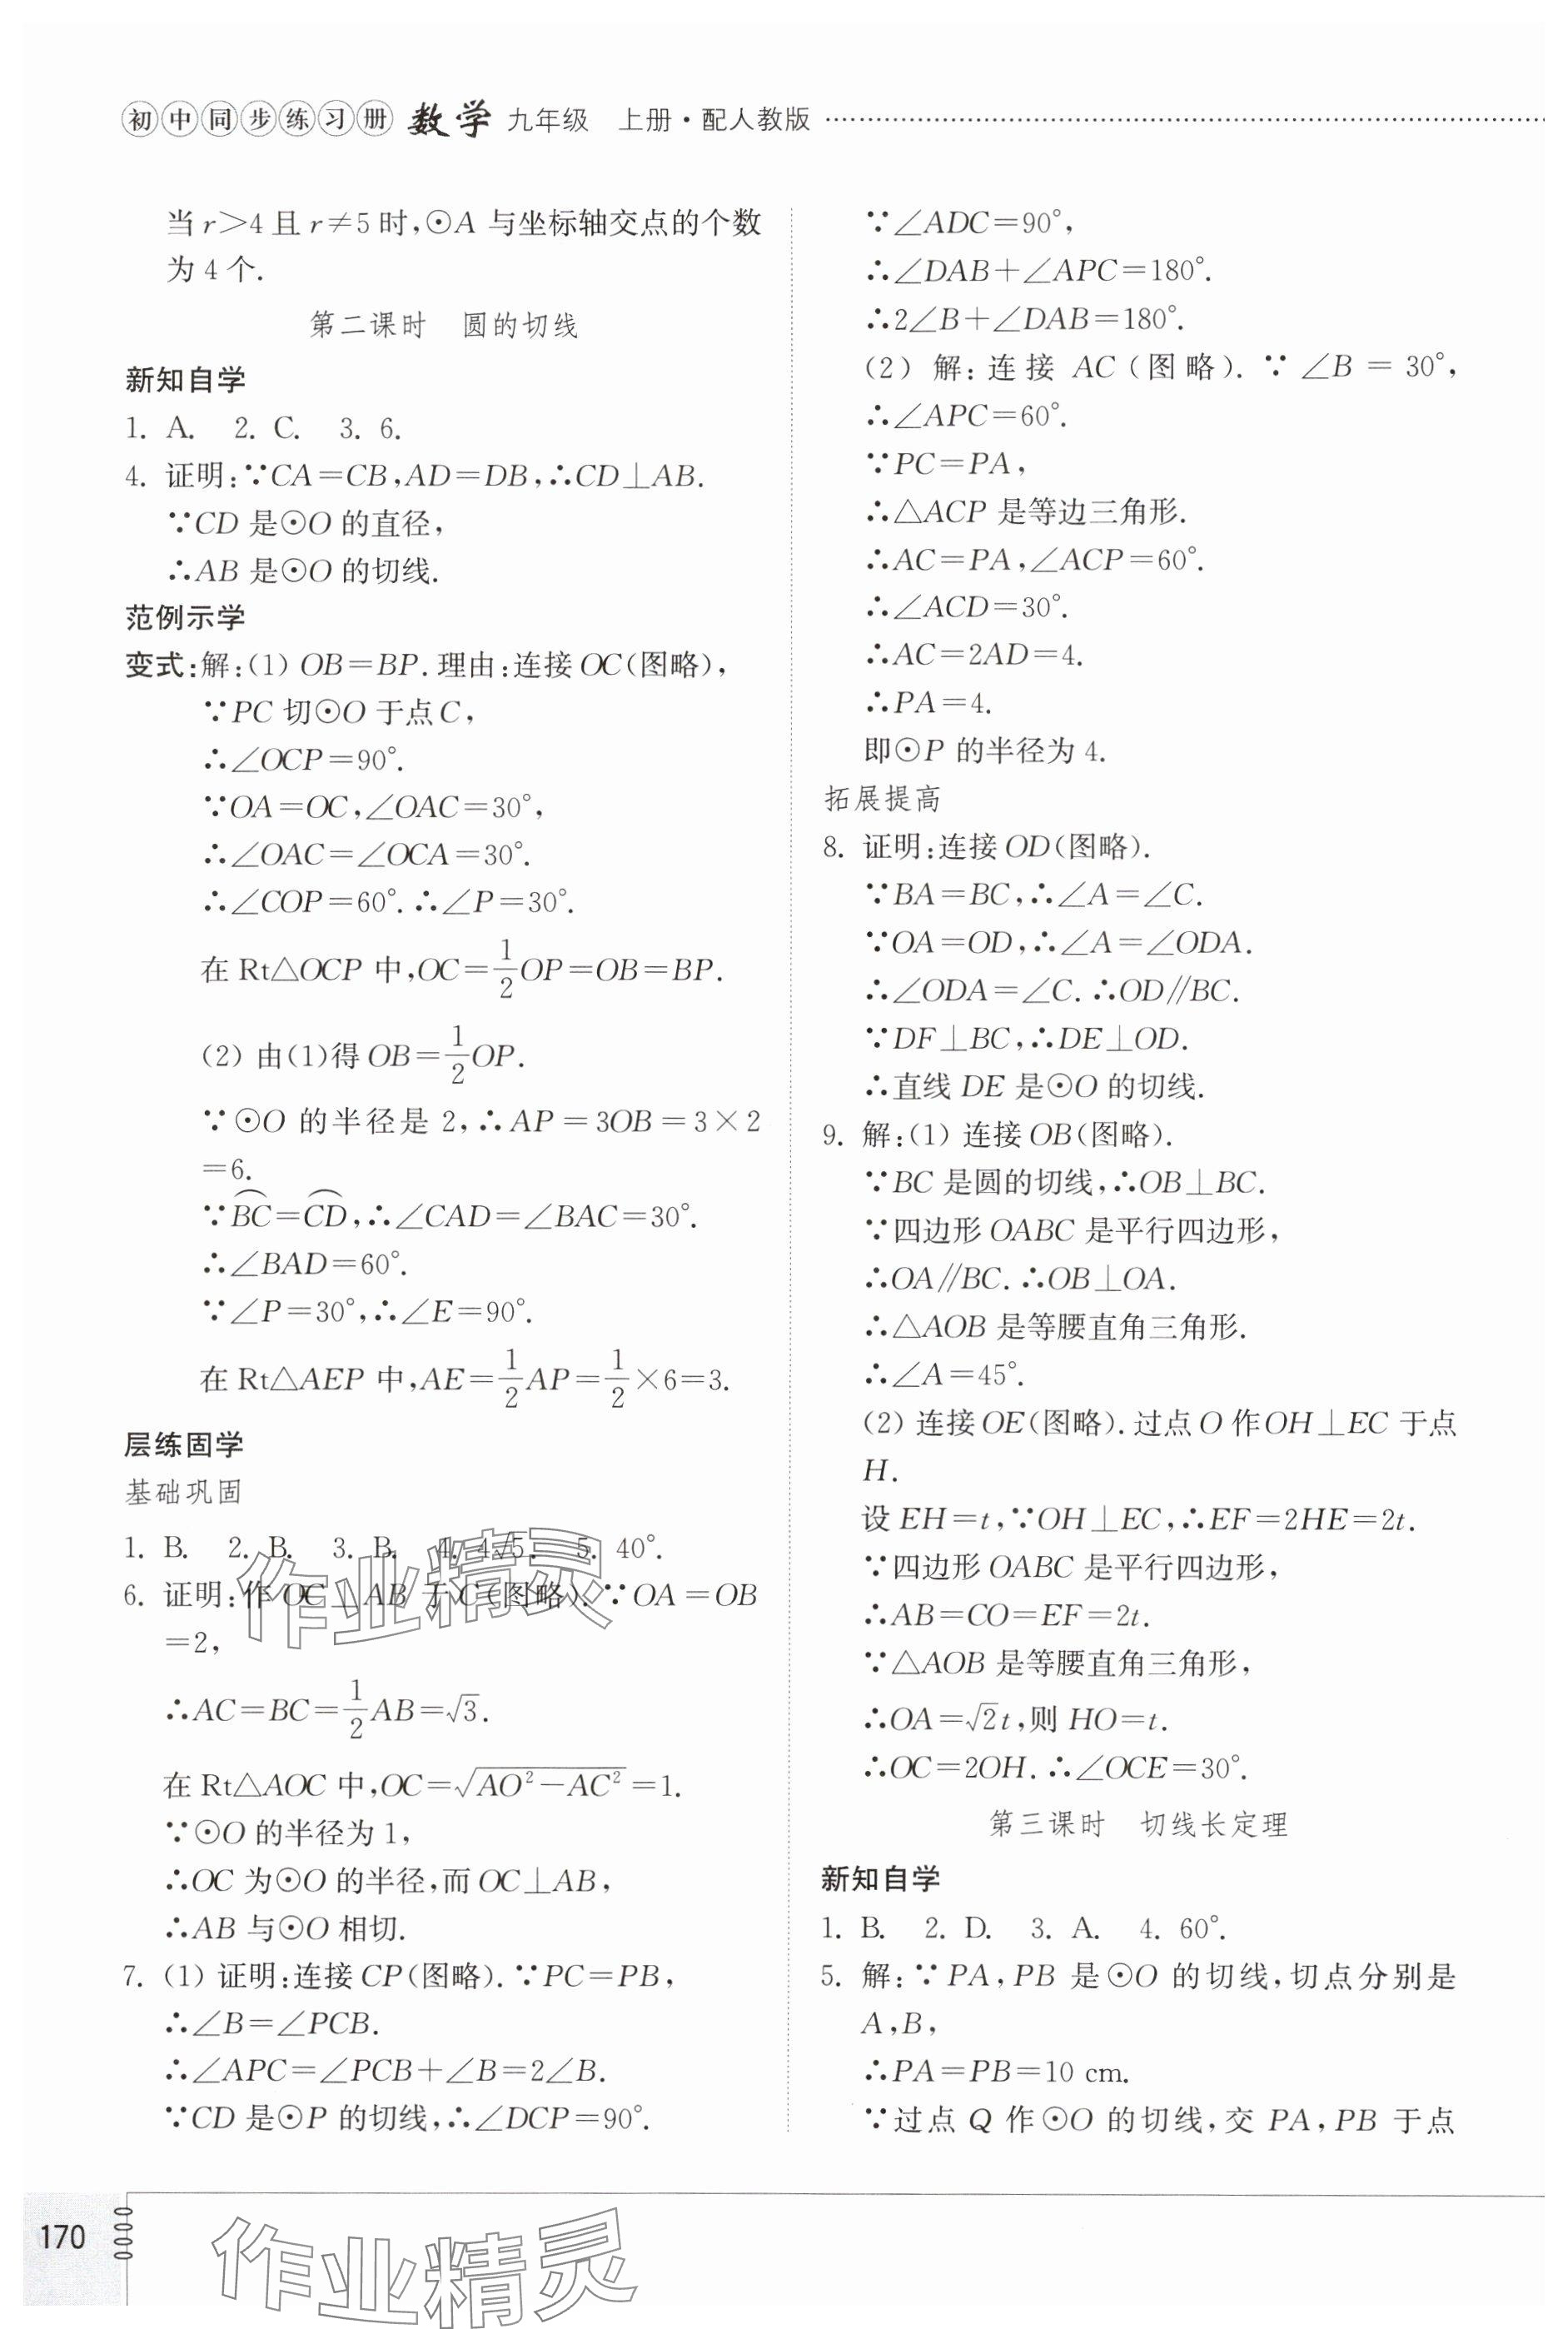 初中同步练习册 数学 九年级 上册·配人教版
当 r>4 且 r≠5 时,⊙A 与坐标轴交点的个数
为 4 个.
第二课时 圆的切线
新知自学
1. A. 2. C. 3. 6.
4. 证明:∵CA=CB,AD=DB,∴CD⊥AB.
∵CD 是⊙O 的直径,
∴AB 是⊙O 的切线.
范例示学
变式:解:(1) OB=BP.理由:连接 OC(图略),
∵PC 切⊙O 于点 C,
∴∠OCP=90°.
∵OA=OC,∠OAC=30°,
∴∠OAC=∠OCA=30°.
∴∠COP=60°.∴∠P=30°.
在 Rt△OCP 中,OC=1/2OP=OB=BP.
(2) 由(1)得 OB=1/2OP.
∵⊙O 的半径是 2,∴AP=3OB=3×2
=6.
∵B͡C=C͡D,∴∠CAD=∠BAC=30°.
∴∠BAD=60°.
∵∠P=30°,∴∠E=90°.
在 Rt△AEP 中,AE=1/2AP=1/2×6=3.
层练固学
基础巩固
1. B. 2. B. 3. B. 4. 4√5. 5. 40°.
6. 证明:作 OC⊥AB 于 C(图略).∵OA=OB
=2,
∴AC=BC=1/2AB=√3.
在 Rt△AOC 中,OC=√(AO²-AC²)=1.
∵⊙O 的半径为 1,
∴OC 为⊙O 的半径,而 OC⊥AB,
∴AB 与⊙O 相切.
7. (1) 证明:连接 CP(图略).∵PC=PB,
∴∠B=∠PCB.
∴∠APC=∠PCB+∠B=2∠B.
∵CD 是⊙P 的切线,∴∠DCP=90°.
∵∠ADC=90°,
∴∠DAB+∠APC=180°.
∴2∠B+∠DAB=180°.
(2) 解:连接 AC(图略).∵∠B=30°,
∴∠APC=60°.
∵PC=PA,
∴△ACP 是等边三角形.
∴AC=PA,∠ACP=60°.
∴∠ACD=30°.
∴AC=2AD=4.
∴PA=4.
即⊙P 的半径为 4.
拓展提高
8. 证明:连接 OD(图略).
∵BA=BC,∴∠A=∠C.
∵OA=OD,∴∠A=∠ODA.
∴∠ODA=∠C.∴OD∥BC.
∵DF⊥BC,∴DE⊥OD.
∴直线 DE 是⊙O 的切线.
9. 解:(1) 连接 OB(图略).
∵BC 是圆的切线,∴OB⊥BC.
∵四边形 OABC 是平行四边形,
∴OA∥BC.∴OB⊥OA.
∴△AOB 是等腰直角三角形.
∴∠A=45°.
(2) 连接 OE(图略).过点 O 作 OH⊥EC 于点
H.
设 EH=t,∵OH⊥EC,∴EF=2HE=2t.
∵四边形 OABC 是平行四边形,
∴AB=CO=EF=2t.
∵△AOB 是等腰直角三角形,
∴OA=√2t,则 HO=t.
∴OC=2OH.∴∠OCE=30°.
第三课时 切线长定理
新知自学
1. B. 2. D. 3. A. 4. 60°.
5. 解:∵PA,PB 是⊙O 的切线,切点分别是
A,B,
∴PA=PB=10 cm.
∵过点 Q 作⊙O 的切线,交 PA,PB 于点
170
作业精灵
作业精灵